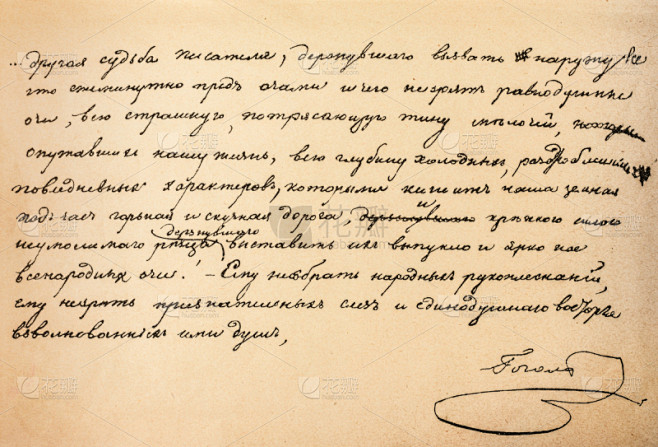 ...другая судьба писателя, дерзнувшаго вызвать наружу все
что ежеминутно предъ очами и чего не зрятъ равнодушные
очи, всю страшную, потрясающую тину мѣлочей,
опутавшихъ нашу жизнь, всю глубину холодныхъ, раздробленныхъ
повседневныхъ характеровъ, которыми кишитъ наша земная
подъ часъ горькая и скучная дорога и крѣпкого силою
неумолимаго рѣзца дерзнувшаго выставить ихъ выпукло и ярко на
всенародныя очи! — Ему не собрать народныхъ рукоплесканій,
ему не зрѣть признательныхъ слезъ и единодушнаго восторга
взволнованныхъ ими душъ,
Гоголь
花瓣